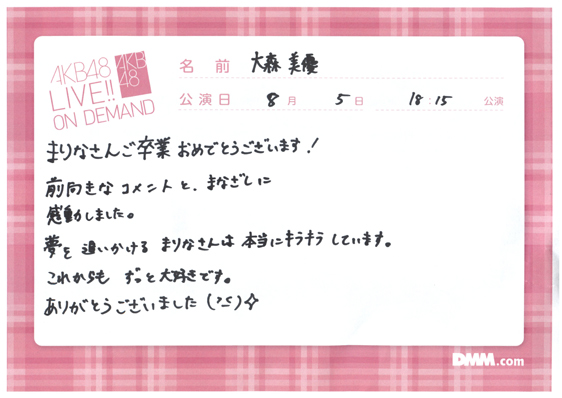 AKB48
LIVE!!
ON DEMAND
AKB
48
名前 大森美優
公演日 8月 5日 18:15 公演
まりなさんご卒業おめでとうございます！
前向きなコメントと、まなざしに
感動しました。
夢を追いかけるまりなさんは本当にキラキラしています。
これからもずっと大好きです。
ありがとうございました
DMM.com